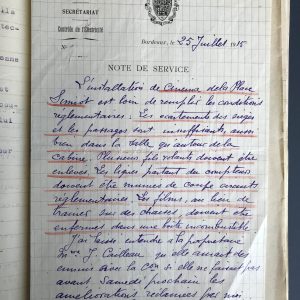 SECRÉTARIAT
Contrôle de l'Electricité
N°
Bordeaux, le 25 Juillet 1915
NOTE DE SERVICE
L'installation de cinéma de la Place
est loin de remplir les conditions
réglementaires. Les écartements des sièges
et les passages sont insuffisants, aussi
bien dans la salle qu'autour de la
cabine. Plusieurs fils volants doivent être
enlevés. Les lignes partant du compteur
doivent être munies de coupe circuits
réglementaires. Les films, au lieu de
traîner sur des chaises, doivent être
enfermés dans une boîte incombustible
J'ai laissé entendre à la propriétaire
Mme J. Cailleau qu'elle aurait des
ennuis avec la si elle ne faisait pas
avant Samedi prochain les
améliorations réclamées par